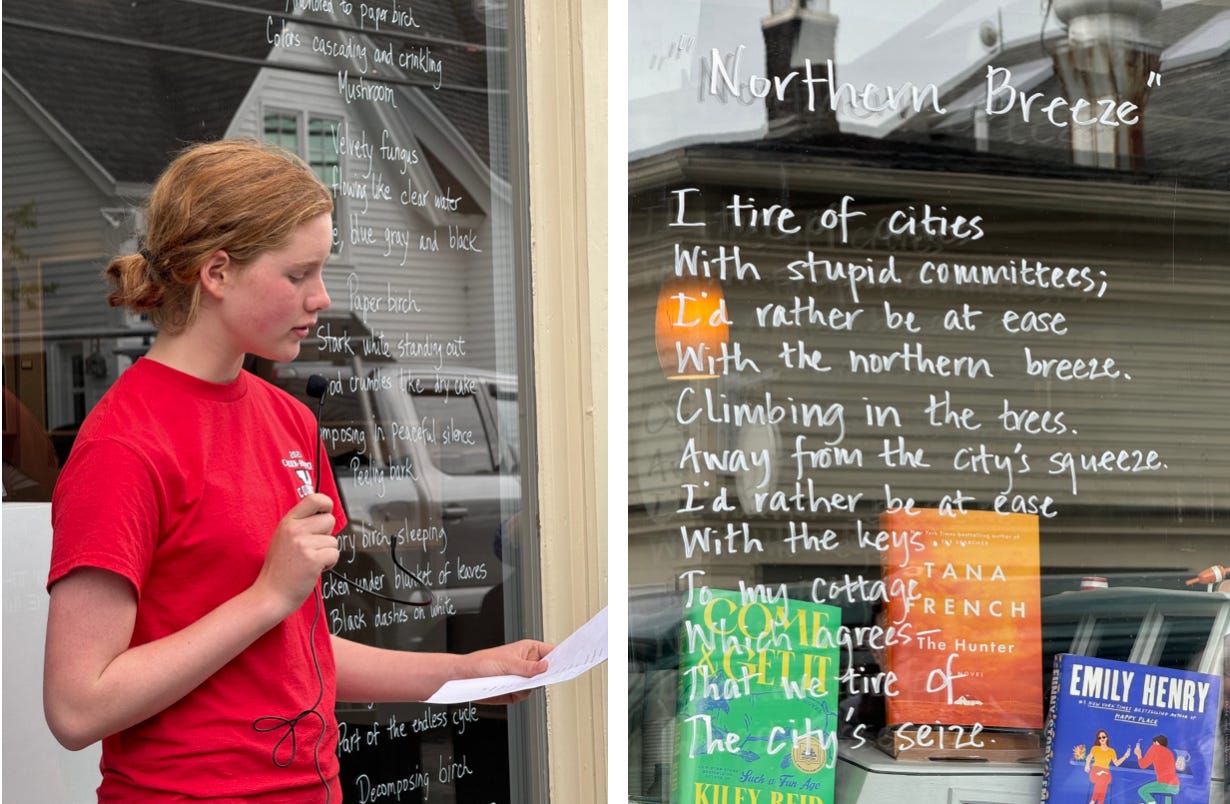 Anchored to paper birch
Colors cascading and crinkling
Mushroom
Velvety fungus
flowing like clear water
blue gray and black
Paper birch
Stark white standing out
crumbles like dry cake
in peaceful silence
Peeling bark
birch sleeping
under blanket of leaves
Black dashes on white
Part of the endless cycle
Decomposing birch
"Northern Breeze"
I tire of cities
With stupid committees;
I'd rather be at ease
With the northern breeze.
Climbing in the trees.
Away from the city's squeeze.
I'd rather be at ease
With the keys...
To my cottage
Which agrees
That we tire of
The city's seize.
COME
& GET IT
Such a Fun Age
KILEY REID
New York Times bestselling author of
THE SEARCHER
TANA
FRENCH
The Hunter
A NOVEL
EMILY HENRY
#1 NEW YORK TIMES BESTSELLING AUTHOR OF
HAPPY PLACE